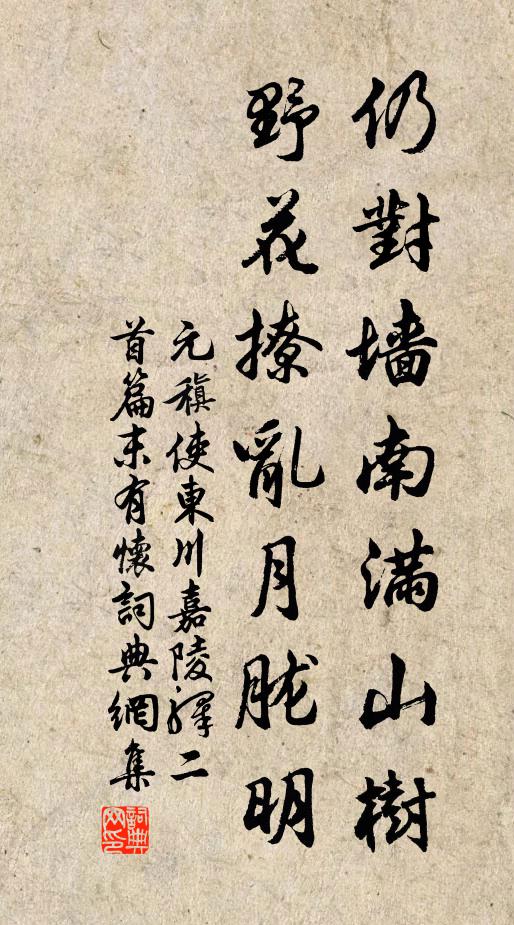 仍對墻南滿山樹
野花撩亂月朧明
元稹使東川嘉陵驛二
首篇末有懷詞典網集
詞典网印